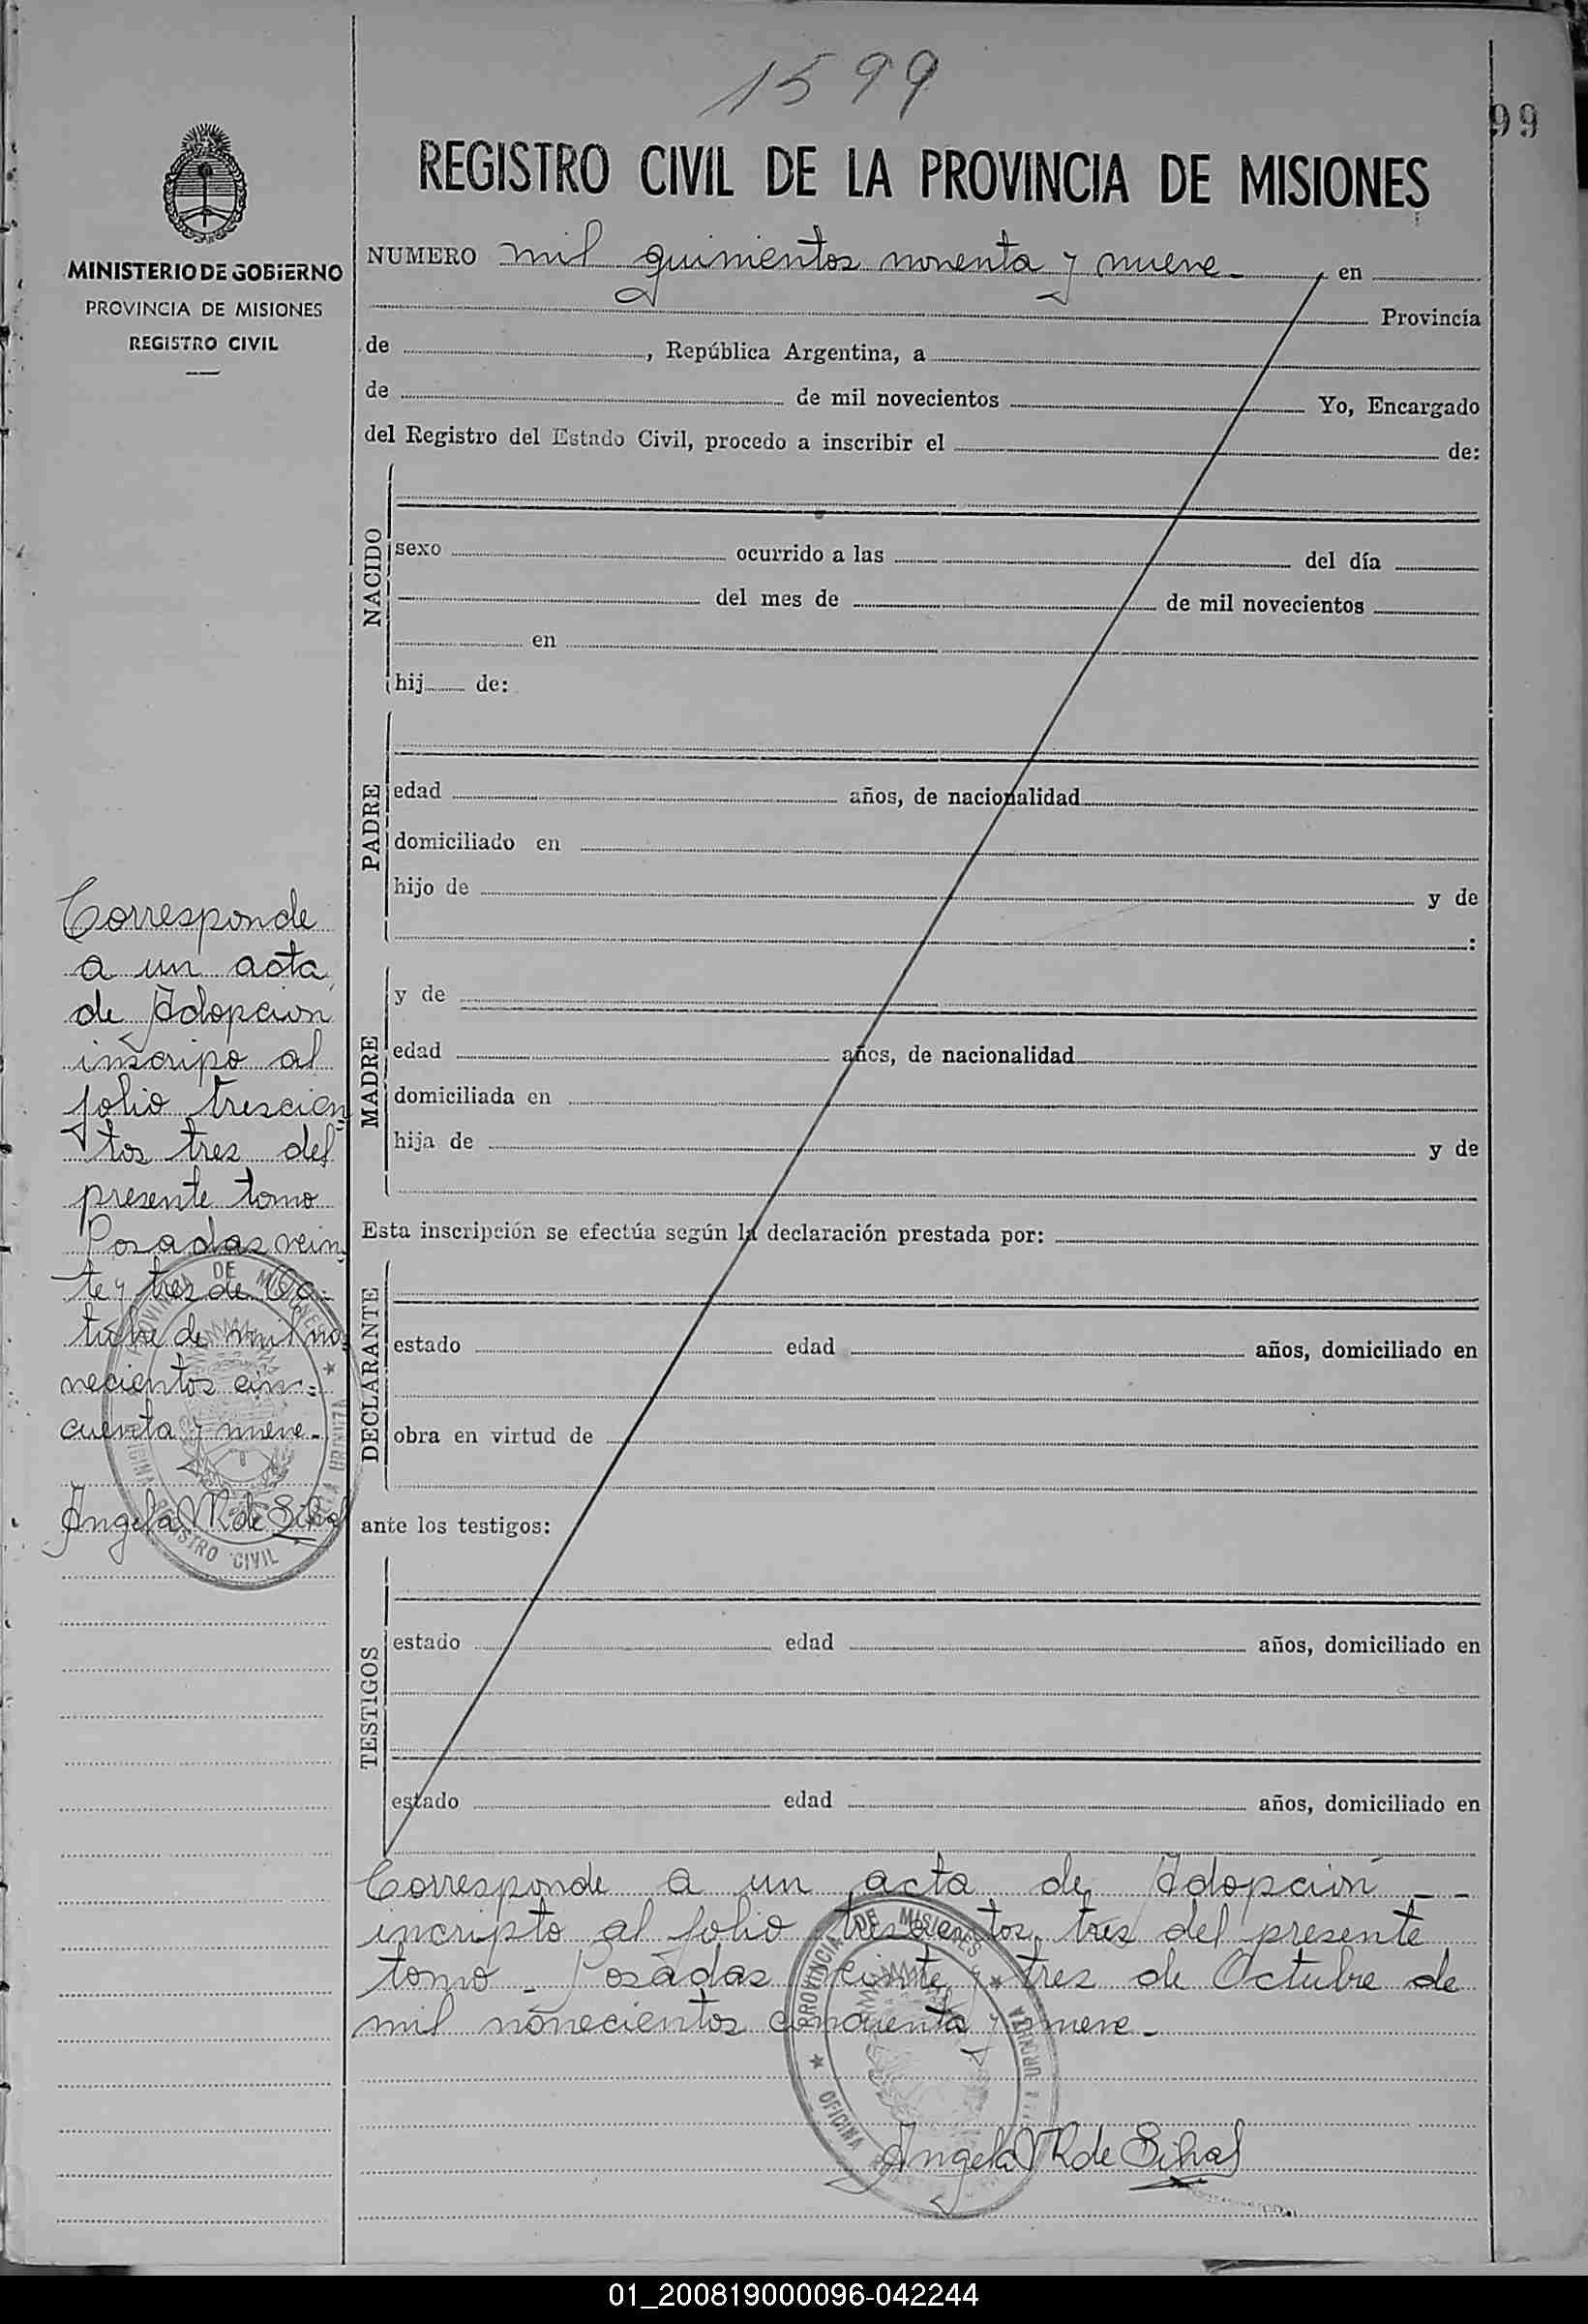 1599
99
REGISTRO CIVIL DE LA PROVINCIA DE MISIONES
MINISTERIO DE GOBIERNO
PROVINCIA DE MISIONES
REGISTRO CIVIL
NUMERO mil quinientos noventa y nueve en
Provincia
de , República Argentina, a
de de mil novecientos Yo, Encargado
del Registro del Estado Civil, procedo a inscribir el de:
NACIDO
sexo ocurrido a las del día
del mes de de mil novecientos
en
hij de:
PADRE
edad años, de nacionalidad
domiciliado en
hijo de y de
:
MADRE
y de
edad años, de nacionalidad
domiciliada en
hija de y de
Esta inscripción se efectúa según la declaración prestada por:
DECLARANTE
estado edad años, domiciliado en
obra en virtud de
ante los testigos:
TESTIGOS
estado edad años, domiciliado en
estado edad años, domiciliado en
Corresponde a un acta de Adopción
incripto al folio trescientos tres del presente
tomo - Posadas veinte y tres de Octubre de
mil novecientos cincuenta y nueve -
PROVINCIA DE MISIONES
OFICINA
Angela R de
Corresponde
a un acta
de Adopcion
inscripo al
folio trescien
tos tres del
presente tomo
Posadas vein
te y tres de Oc-
tubre de mil no
vecientos cin=
cuenta y nueve -
Angela R de
PROVINCIA DE MISIONES
OFICINA REGISTRO CIVIL
01_200819000096-042244